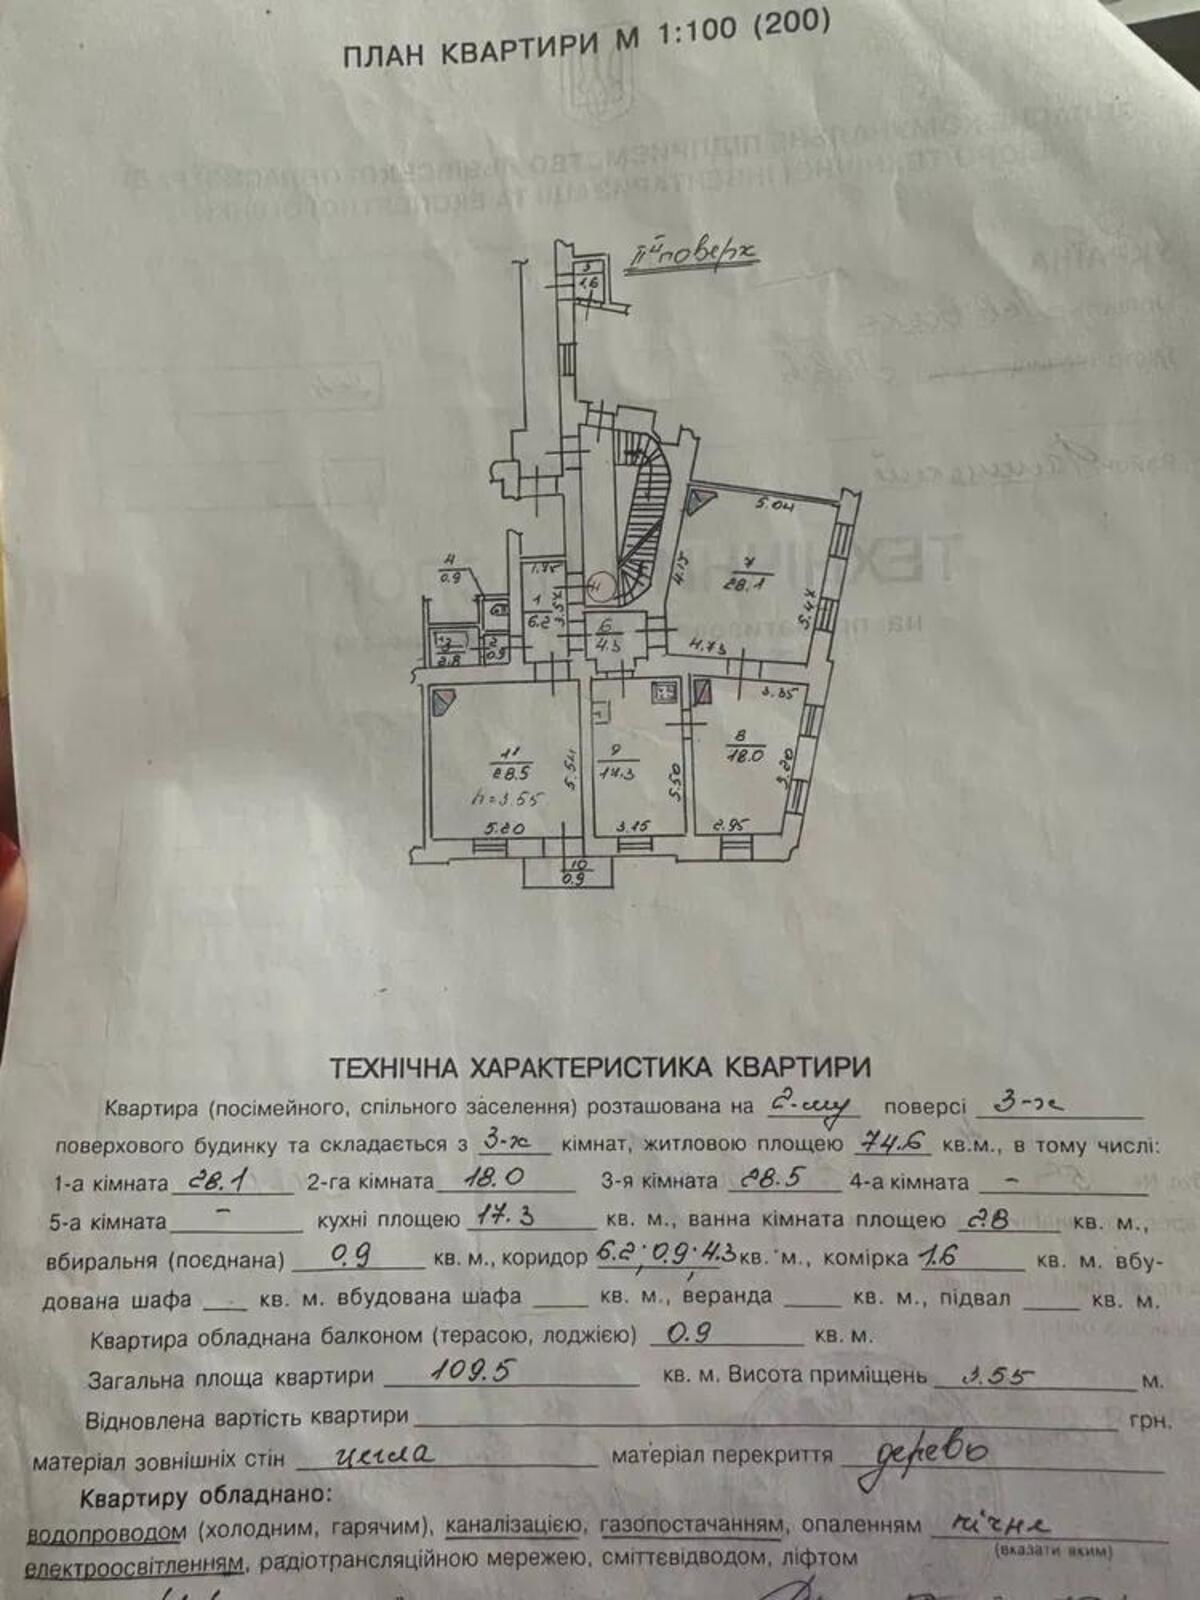 ПЛАН КВАРТИРИ М 1:100 (200)
ІІй поверх
5
1.6
5.04
7
28.1
4.15
5.47
4.73
4
0.9
1.75
1
6.2
3.57
6
4.3
3
2.8
2
0.9
3.35
11
28.5
h=3.55
5.54
5.20
9
17.3
5.50
3.15
8
18.0
5.20
2.95
10
0.9
ТЕХНІЧНА ХАРАКТЕРИСТИКА КВАРТИРИ
Квартира (посімейного, спільного заселення) розташована на 2-му поверсі 3-х
поверхового будинку та складається з 3-х кімнат, житловою площею 74.6 кв.м., в тому числі:
1-а кімната 28.1 2-га кімната 18.0 3-я кімната 28.5 4-а кімната -
5-а кімната - кухні площею 17.3 кв. м., ванна кімната площею 2.8 кв. м.,
вбиральня (поєднана) 0.9 кв. м., коридор 6.2; 0.9; 4.3 кв. м., комірка 1.6 кв. м. вбу-
дована шафа кв. м. вбудована шафа кв. м., веранда кв. м., підвал кв. м.
Квартира обладнана балконом (терасою, лоджією) 0.9 кв. м.
Загальна площа квартири 109.5 кв. м. Висота приміщень 3.55 м.
Відновлена вартість квартири грн.
матеріал зовнішніх стін цегла матеріал перекриття дерево
Квартиру обладнано:
водопроводом (холодним, гарячим), каналізацією, газопостачанням, опаленням пічне
(вказати яким)
електроосвітленням, радіотрансляційною мережею, сміттєвідводом, ліфтом